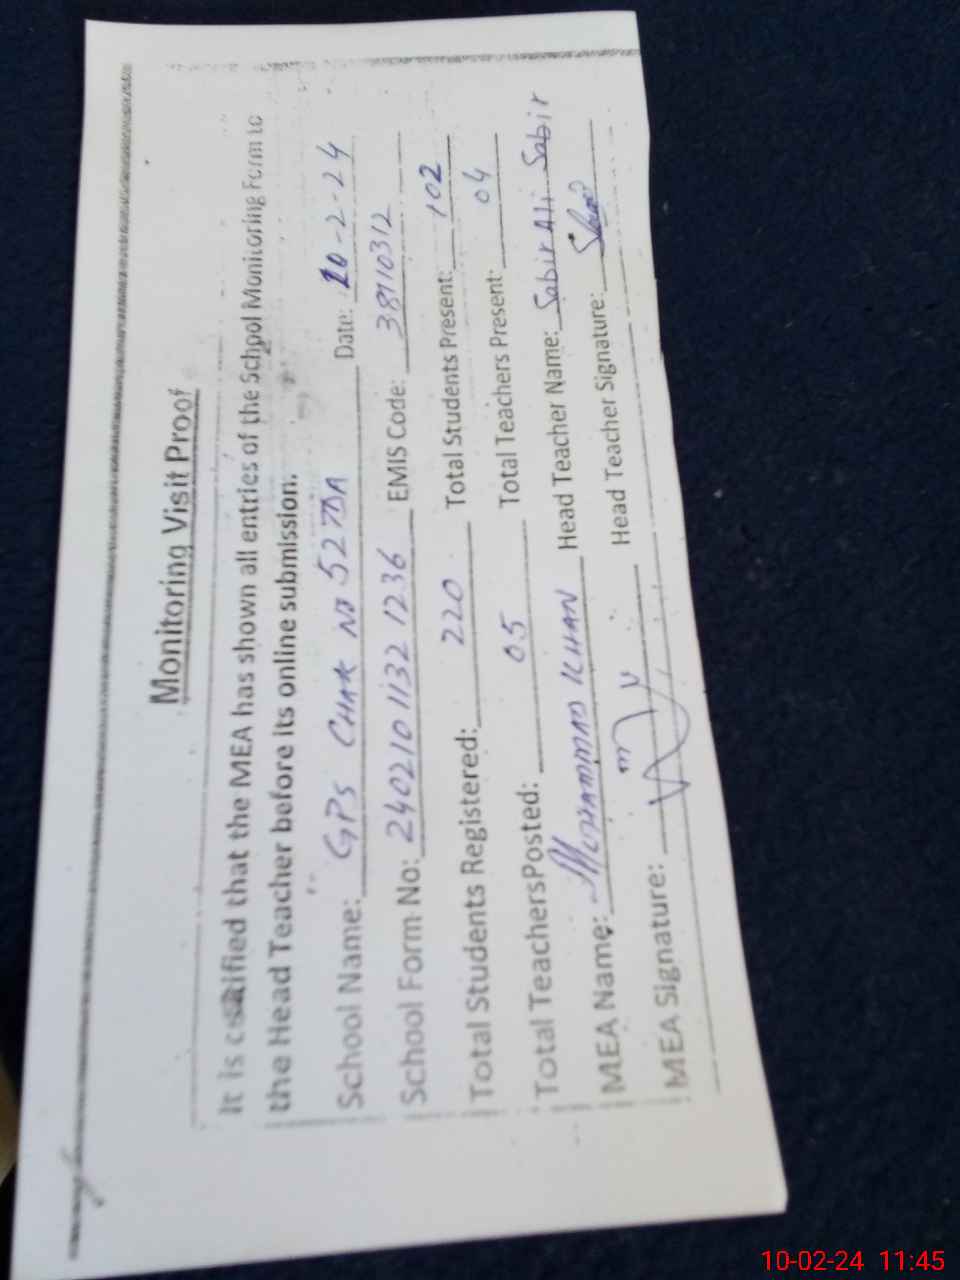 Monitoring Visit Proof
It is certified that the MEA has shown all entries of the School Monitoring Form to
the Head Teacher before its online submission.
School Name: GPS CHAK No 527DA Date: 10-2-24
School Form No: 24021011321236 EMIS Code: 38110312
Total Students Registered: 220 Total Students Present: 102
Total TeachersPosted: 05 Total Teachers Present: 04
MEA Name: MUHAMMAD KHAN Head Teacher Name: Sabir Ali Sabir
MEA Signature: Head Teacher Signature:
10-02-24 11:45